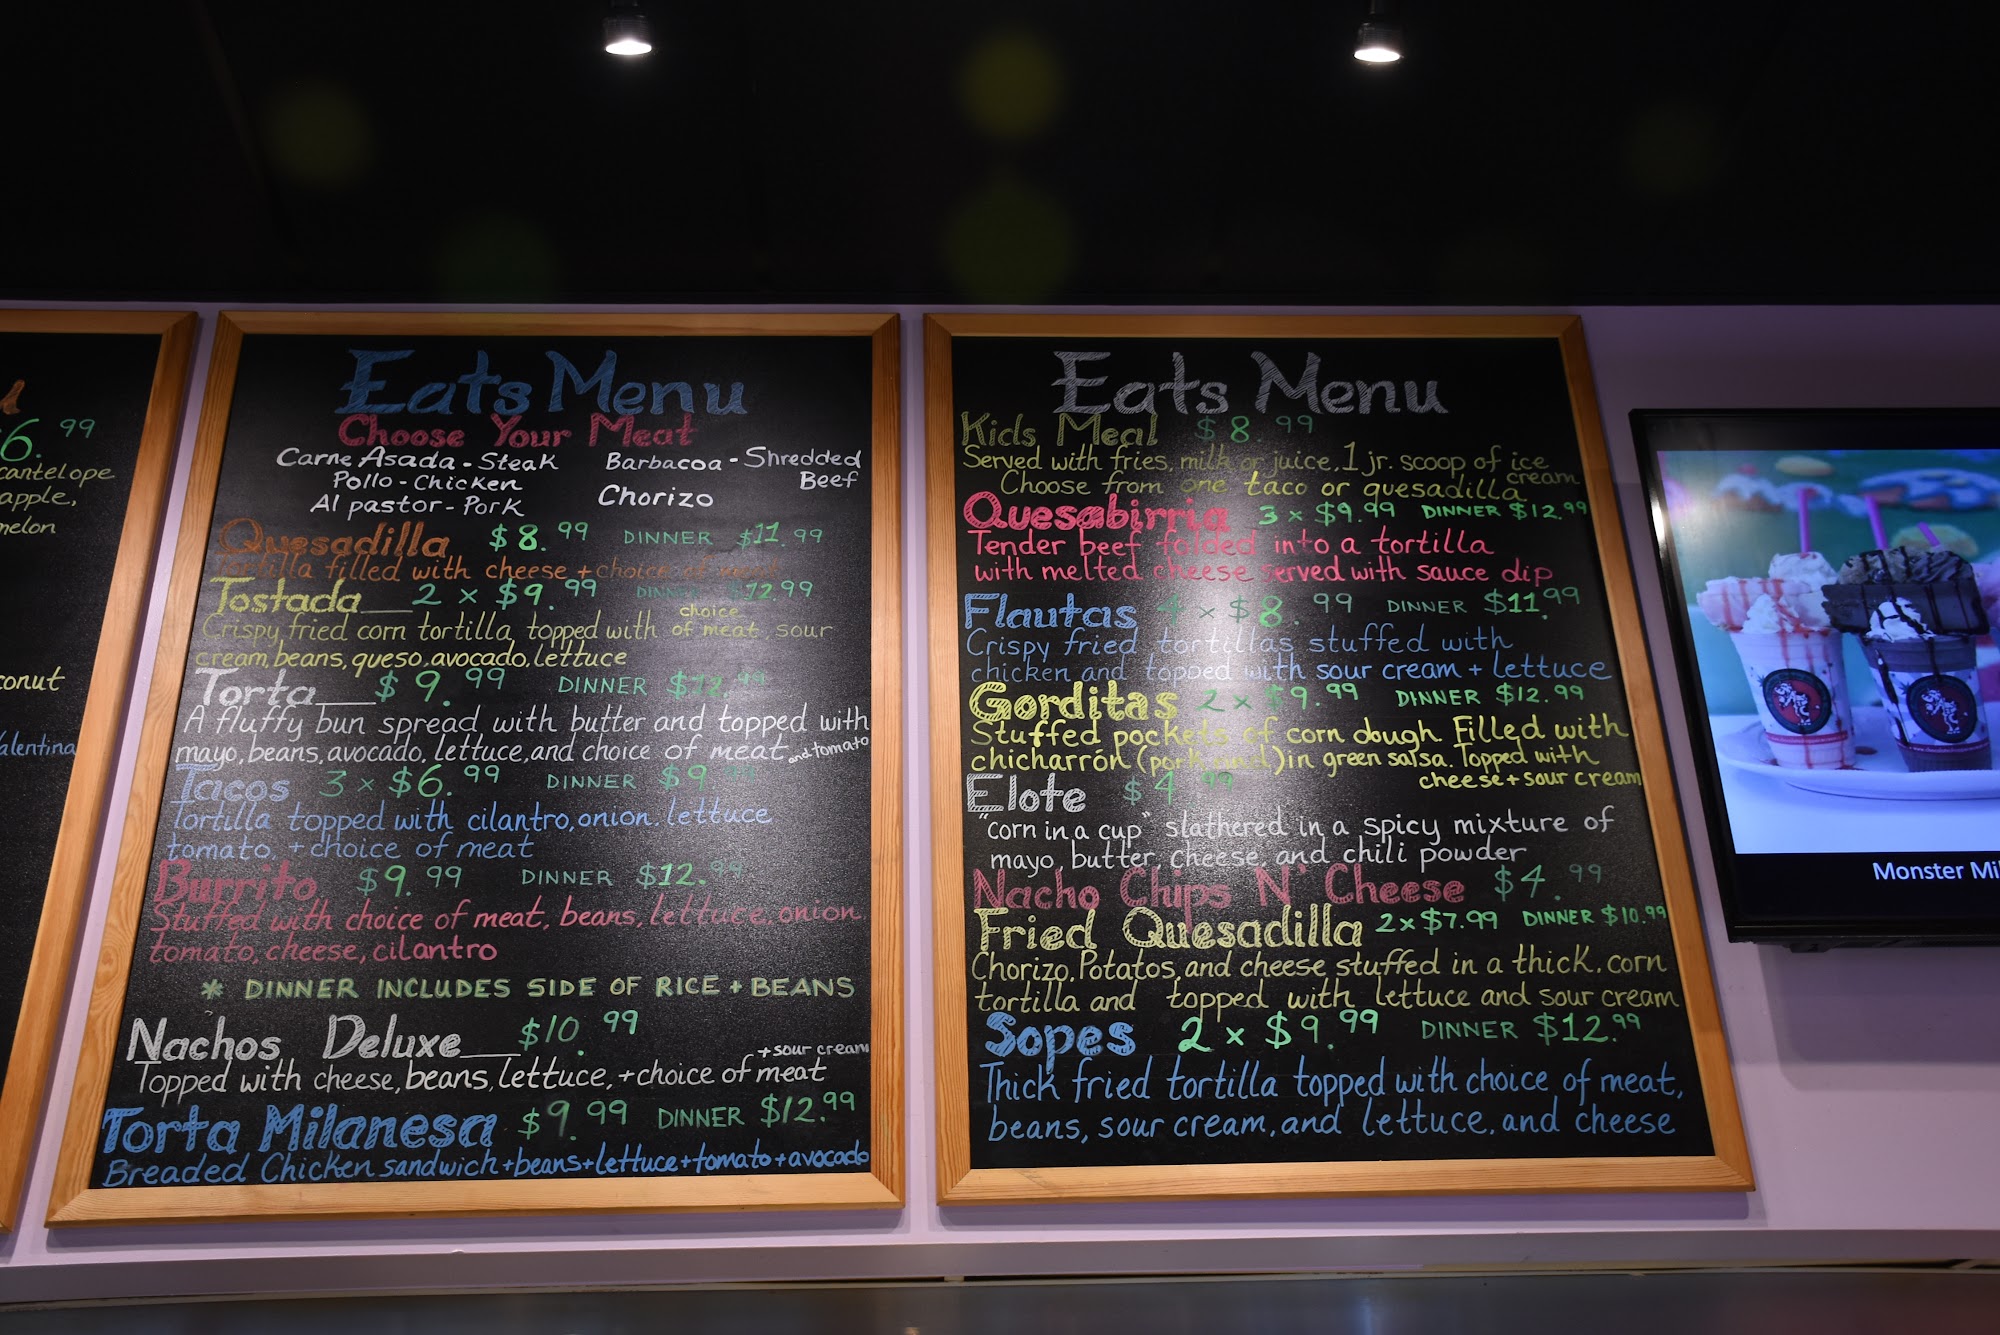 $6.99
cantelope
apple,
melon
conut
Valentina
Eats Menu
Choose Your Meat
Carne Asada - Steak
Pollo - Chicken
Al pastor - Pork
Barbacoa - Shredded
Beef
Chorizo
Quesadilla $8.99 DINNER $11.99
Tortilla filled with cheese + choice of meat
Tostada 2 x $9.99 DINNER $12.99
Crispy fried corn tortilla topped with choice of meat, sour
cream, beans, queso, avocado, lettuce
Torta $9.99 DINNER $12.99
A fluffy bun spread with butter and topped with
mayo, beans, avocado, lettuce, and choice of meat and tomato
Tacos 3 x $6.99 DINNER $9.99
Tortilla topped with cilantro, onion, lettuce
tomato, + choice of meat
Burrito $9.99 DINNER $12.99
Stuffed with choice of meat, beans, lettuce, onion
tomato, cheese, cilantro
* DINNER INCLUDES SIDE OF RICE + BEANS
Nachos Deluxe $10.99
Topped with cheese, beans, lettuce, + choice of meat + sour cream
Torta Milanesa $9.99 DINNER $12.99
Breaded Chicken sandwich + beans + lettuce + tomato + avocado
Eats Menu
Kids Meal $8.99
Served with fries, milk or juice, 1 jr. scoop of ice cream
Choose from one taco or quesadilla
Quesabirria 3 x $9.99 DINNER $12.99
Tender beef folded into a tortilla
with melted cheese served with sauce dip
Flautas 4 x $8.99 DINNER $11.99
Crispy fried tortillas stuffed with
chicken and topped with sour cream + lettuce
Gorditas 2 x $9.99 DINNER $12.99
Stuffed pockets of corn dough. Filled with
chicharrón (pork rind) in green salsa. Topped with
cheese + sour cream
Elote $4.99
"corn in a cup" slathered in a spicy mixture of
mayo, butter, cheese, and chili powder
Nacho Chips N' Cheese $4.99
Fried Quesadilla 2 x $7.99 DINNER $10.99
Chorizo, Potatos, and cheese stuffed in a thick, corn
tortilla and topped with lettuce and sour cream
Sopes 2 x $9.99 DINNER $12.99
Thick fried tortilla topped with choice of meat,
beans, sour cream, and lettuce, and cheese
Monster Mi